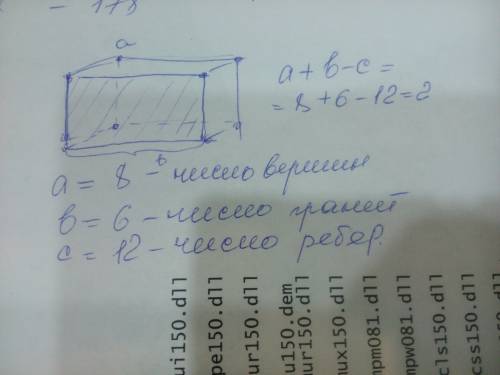 - 178
a
a + в - c =
= 8 + 6 - 12 = 2
в
a = 8 - число вершин
в = 6 - число граней
c = 12 - число ребер.
ui150.dll
pe150.dll
ur150.dll
u150.dem
nur150.dll
nux150.dll
npm081.dll
npw081.dll
cls150.dll
css150.dll